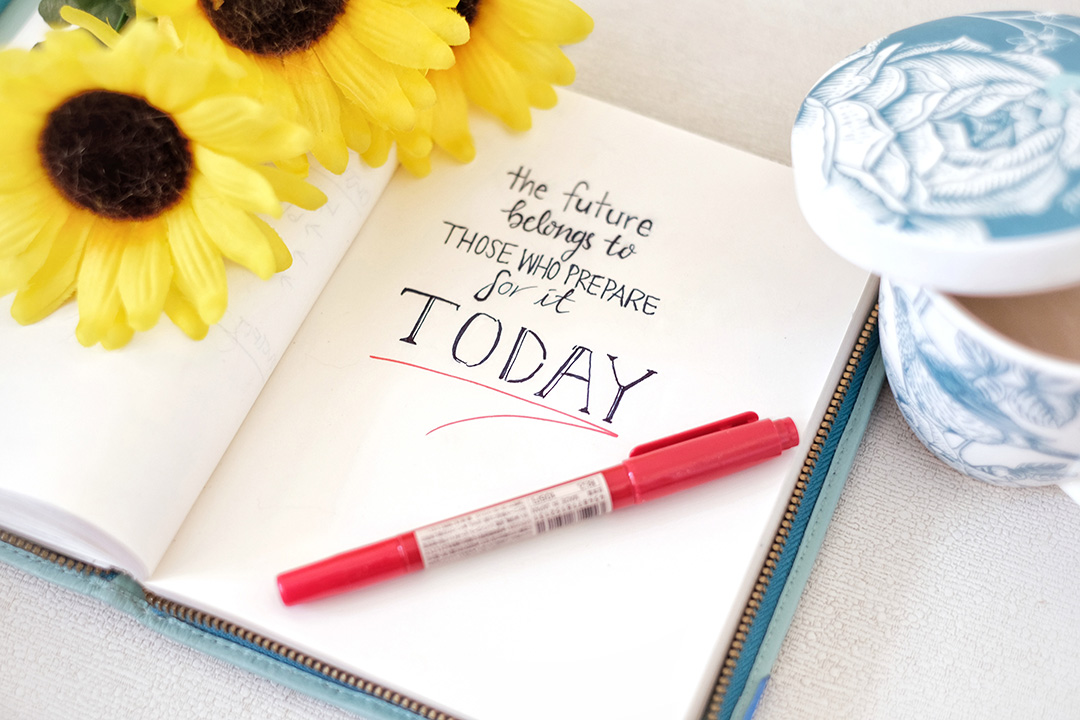 the future
belongs to
THOSE WHO PREPARE
for it
TODAY